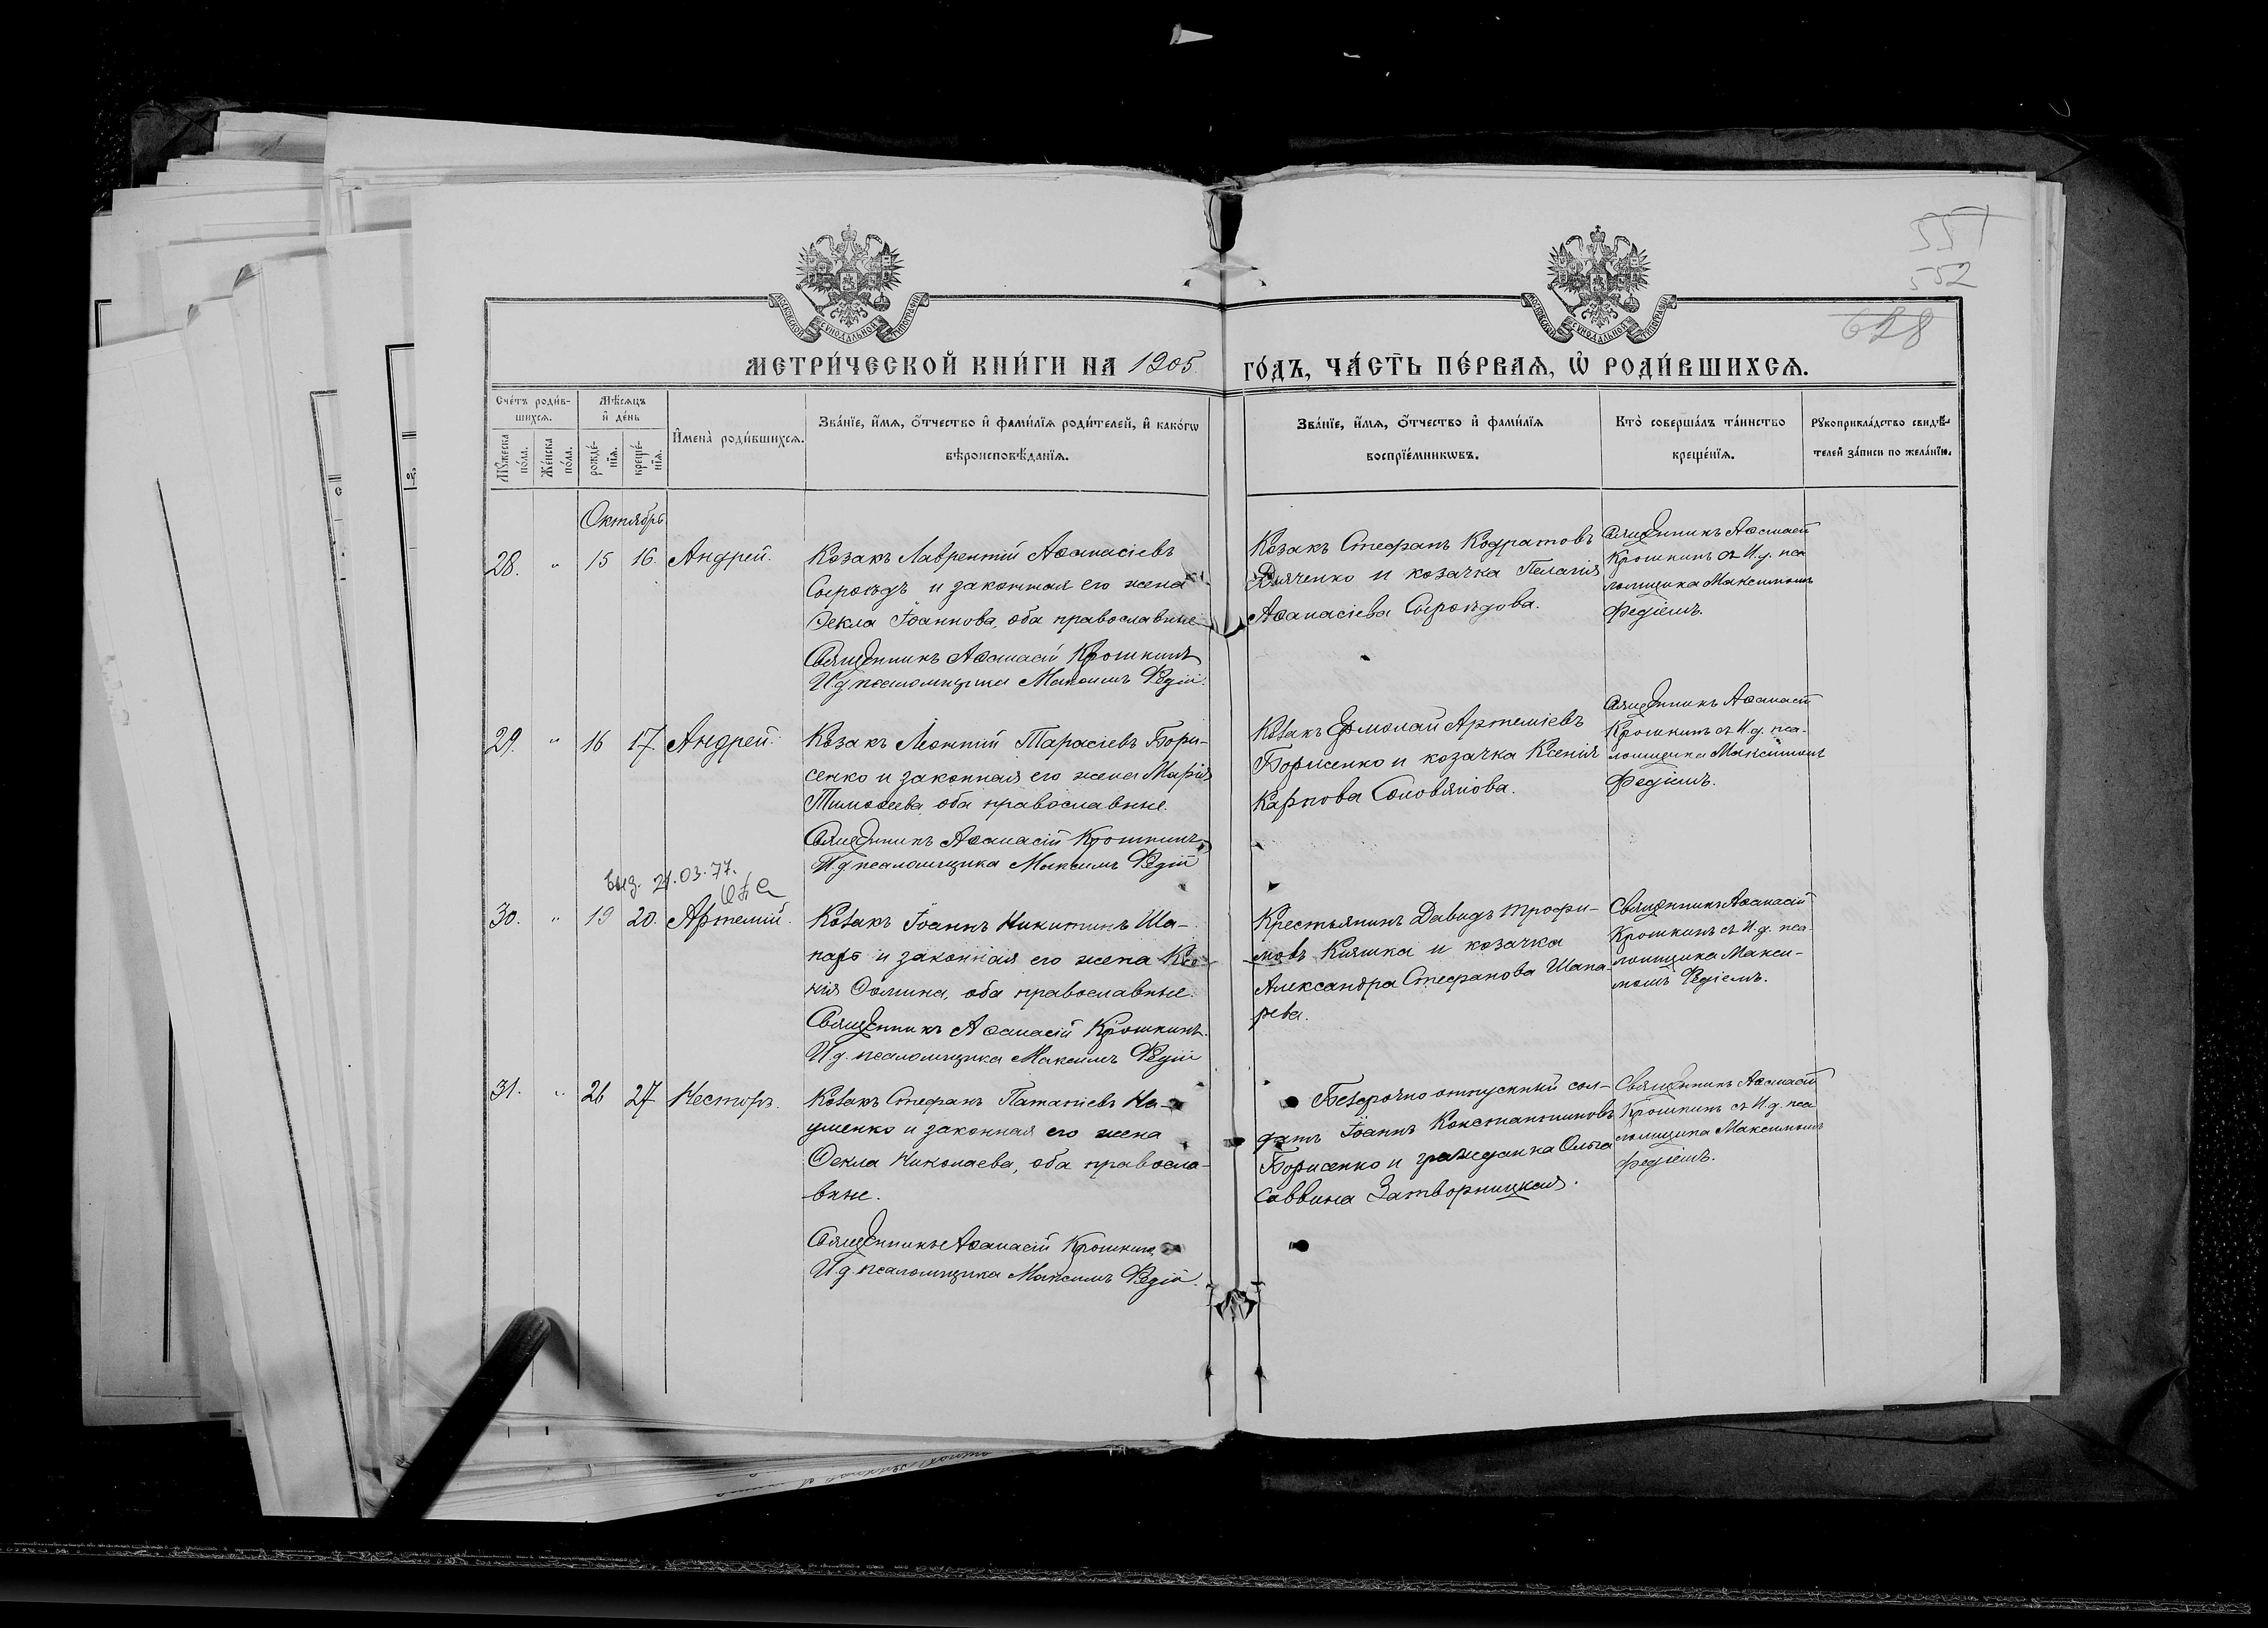 551
552
628
МОСКОВСКОЙ СѴНОДАЛЬНОЙ ТИПОГРАФІИ
МОСКОВСКОЙ СѴНОДАЛЬНОЙ ТИПОГРАФІИ
МЕТРИ́ЧЕСКОЙ КНИ́ГИ НА 1905 ГО́ДЪ, ЧА́СТЬ ПЕ́РВАѦ, Ѽ РОДИ́ВШИХСѦ.
Сче́тъ роди́в-
шихсѧ.
Мꙋ́жеска по́ла.
Же́нска по́ла.
Мѣ́сѧцъ
и҆ де́нь
рожде́-
нїѧ.
креще́-
нїѧ.
И҆мена̀ роди́вшихсѧ.
Зва́нїе, и҆́мѧ, ѻ҆́тчество и҆ фами́лїѧ роди́телей, и҆ како́гѡ
вѣроисповѣ́данїѧ.
Зва́нїе, и҆́мѧ, ѻ҆́тчество и҆ фами́лїѧ
воспрїе́мникѡвъ.
Кто̀ соверша́лъ та́инство
креще́нїѧ.
Рꙋкоприкла́дство свидѣ́-
телей за́писи по жела́нїю.
Октябрь.
28. " 15 16. Андрей.
Козакъ Лаврентій Аѳанасіевъ
Сыроѣдъ и законная его жена
Ѳекла Іоаннова, оба православные
Священникъ Аѳанасій Крошкинъ
И.д. псаломщика Максимъ Федій.
Козакъ Стефанъ Кодратовъ
Дяченко и козачка Пелагія
Аѳанасіева Сыроѣдова.
Священникъ Аѳанасій
Крошкинъ съ И.д. пса
ломщика Максимомъ
Федіемъ.
29. " 16 17 Андрей.
Козакъ Леонтій Тарасіевъ Бори-
сенко и законная его жена Марія
Тимоѳеева, оба православные.
Священникъ Аѳанасій Крошкинъ
И.д. псаломщика Максимъ Федій
Козакъ Ермолай Артеміевъ
Борисенко и козачка Ксенія
Карпова Соловянова.
Священникъ Аѳанасій
Крошкинъ съ И.д. пса-
ломщика Максимомъ
Федіемъ.
Выд. 21.03.77.
30. " 19 20. Артемій.
Козакъ Іоаннъ Никитинъ Ша-
парь и законная его жена Ксе-
нія Ѳомина, оба православные.
Священникъ Аѳанасій Крошкинъ.
И.д. псаломщика Максимъ Федій
Крестьянинъ Давидъ Трофи-
мовъ Кияшка и козачка
Александра Стефанова Шапа-
рева.
Священникъ Аѳанасій
Крошкинъ съ И.д. пса-
ломщика Макси-
момъ Федіемъ.
31. " 26 27 Несторъ.
Козакъ Стефанъ Патапіевъ На-
уменко и законная его жена
Ѳекла Николаева, оба правосла-
вные.
Священникъ Аѳанасій Крошкинъ
И.д. псаломщика Максимъ Федій.
Безсрочно отпускный сол-
датъ Іоаннъ Константиновъ
Борисенко и гражданка Ольга
Саввина Затворницкая.
Священникъ Аѳанасій
Крошкинъ съ И.д. пса
ломщика Максимомъ
Федіемъ.